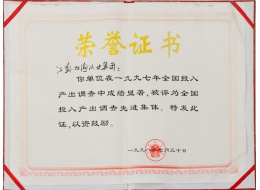 荣誉证书
你单位在一九九七年全国投入
产出调查中成绩显著，被评为全国
投入产出调查先进集体。特发此
证，以资鼓励。
一九九八年七月三十日